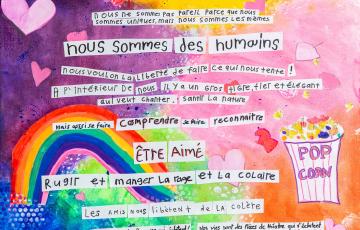 nous ne sommes pas pareil parce que nous
sommes uniques, mais nous sommes les mêmes
nous sommes des humains
nous voulon la liberté de faire ce qui nous tente !
A l'intérieur De nous il y a un gros tigre, fier et élégant
qui veut chanter, sentir la nature
Mais aussi se faire comprendre se faire reconnaître
ÊTRE AiMÉ
POP
CORN
Rugir et manger La rage et La colaire
Les amis nous libèrent de LA colère
Nos vies sont des pièces de théâtre qui s'